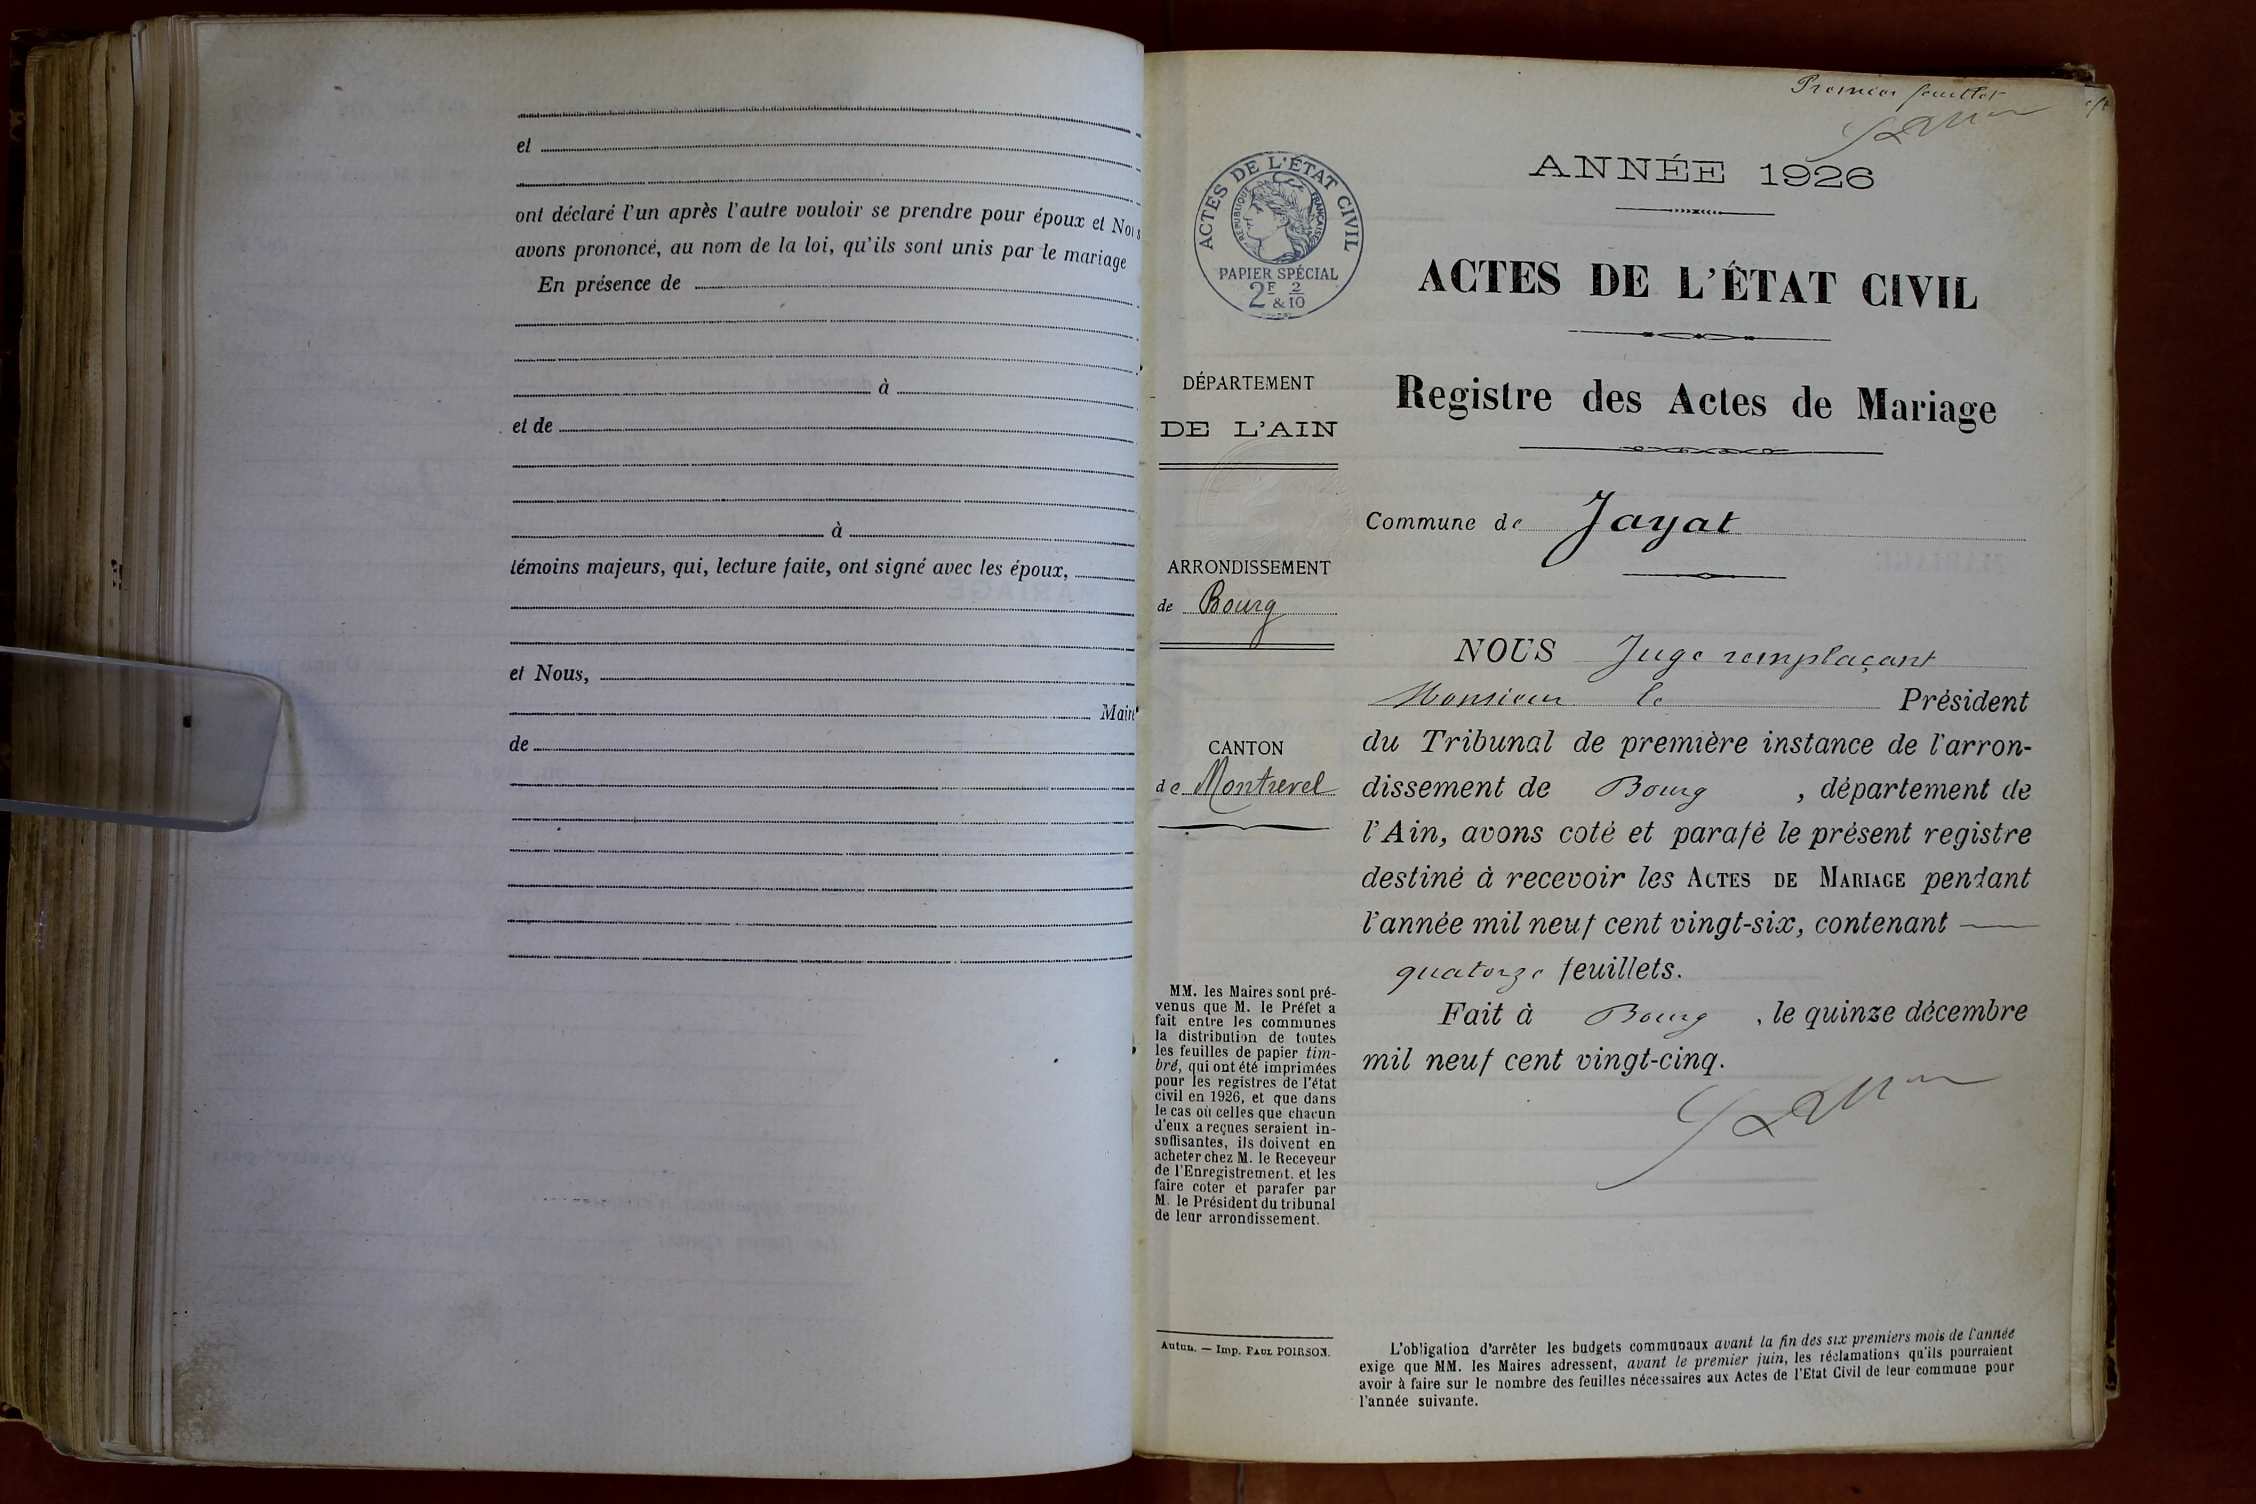 et
ont déclaré l'un après l'autre vouloir se prendre pour époux et Nous
avons prononcé, au nom de la loi, qu'ils sont unis par le mariage
En présence de
à
et de
à
témoins majeurs, qui, lecture faite, ont signé avec les époux,
et Nous,
Maire
de
Premier feuillet
ANNÉE 1926
ACTES DE L'ÉTAT CIVIL
RÉPUBLIQUE FRANÇAISE
PAPIER SPÉCIAL
2F & 2/10
ACTES DE L'ÉTAT CIVIL
Registre des Actes de Mariage
Commune de Jayat
DÉPARTEMENT
DE L'AIN
ARRONDISSEMENT
de Bourg
CANTON
de Montrevel
MM. les Maires sont pré-
venus que M. le Préfet a
fait entre les communes
la distribution de toutes
les feuilles de papier tim-
bré, qui ont été imprimées
pour les registres de l'état
civil en 1926, et que dans
le cas où celles que chacun
d'eux a reçues seraient in-
suffisantes, ils doivent en
acheter chez M. le Receveur
de l'Enregistrement. et les
faire coter et parafer par
M. le Président du tribunal
de leur arrondissement.
Autun. — Imp. PAUL POIRSON.
NOUS Juge remplaçant
Monsieur le Président
du Tribunal de première instance de l'arron-
dissement de Bourg , département de
l'Ain, avons coté et parafé le présent registre
destiné à recevoir les ACTES DE MARIAGE pendant
l'année mil neuf cent vingt-six, contenant
quatorze feuillets.
Fait à Bourg , le quinze décembre
mil neuf cent vingt-cinq.
L'obligation d'arrêter les budgets communaux avant la fin des six premiers mois de l'année
exige que MM. les Maires adressent, avant le premier juin, les réclamations qu'ils pourraient
avoir à faire sur le nombre des feuilles nécessaires aux Actes de l'Etat Civil de leur commune pour
l'année suivante.